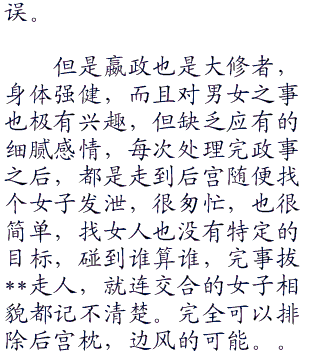 误。
但是嬴政也是大修者，
身体强健，而且对男女之事
也极有兴趣，但缺乏应有的
细腻感情，每次处理完政事
之后，都是走到后宫随便找
个女子发泄，很匆忙，也很
简单，找女人也没有特定的
目标，碰到谁算谁，完事拔
**走人，就连交合的女子相
貌都记不清楚。完全可以排
除后宫枕，边风的可能。。